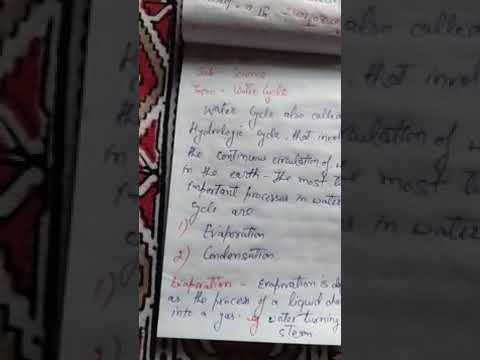 Sub - Science
Topic - Water Cycle
Water Cycle also called
Hydrologic Cycle. that invol
the continuous circulation of w
in the earth - the most
important processes in water
Cycle are
1) Evaporation
2) Condensation
Evaporation - Evaporation is de
as the process of a liquid
into a gas. eg water turning
steam